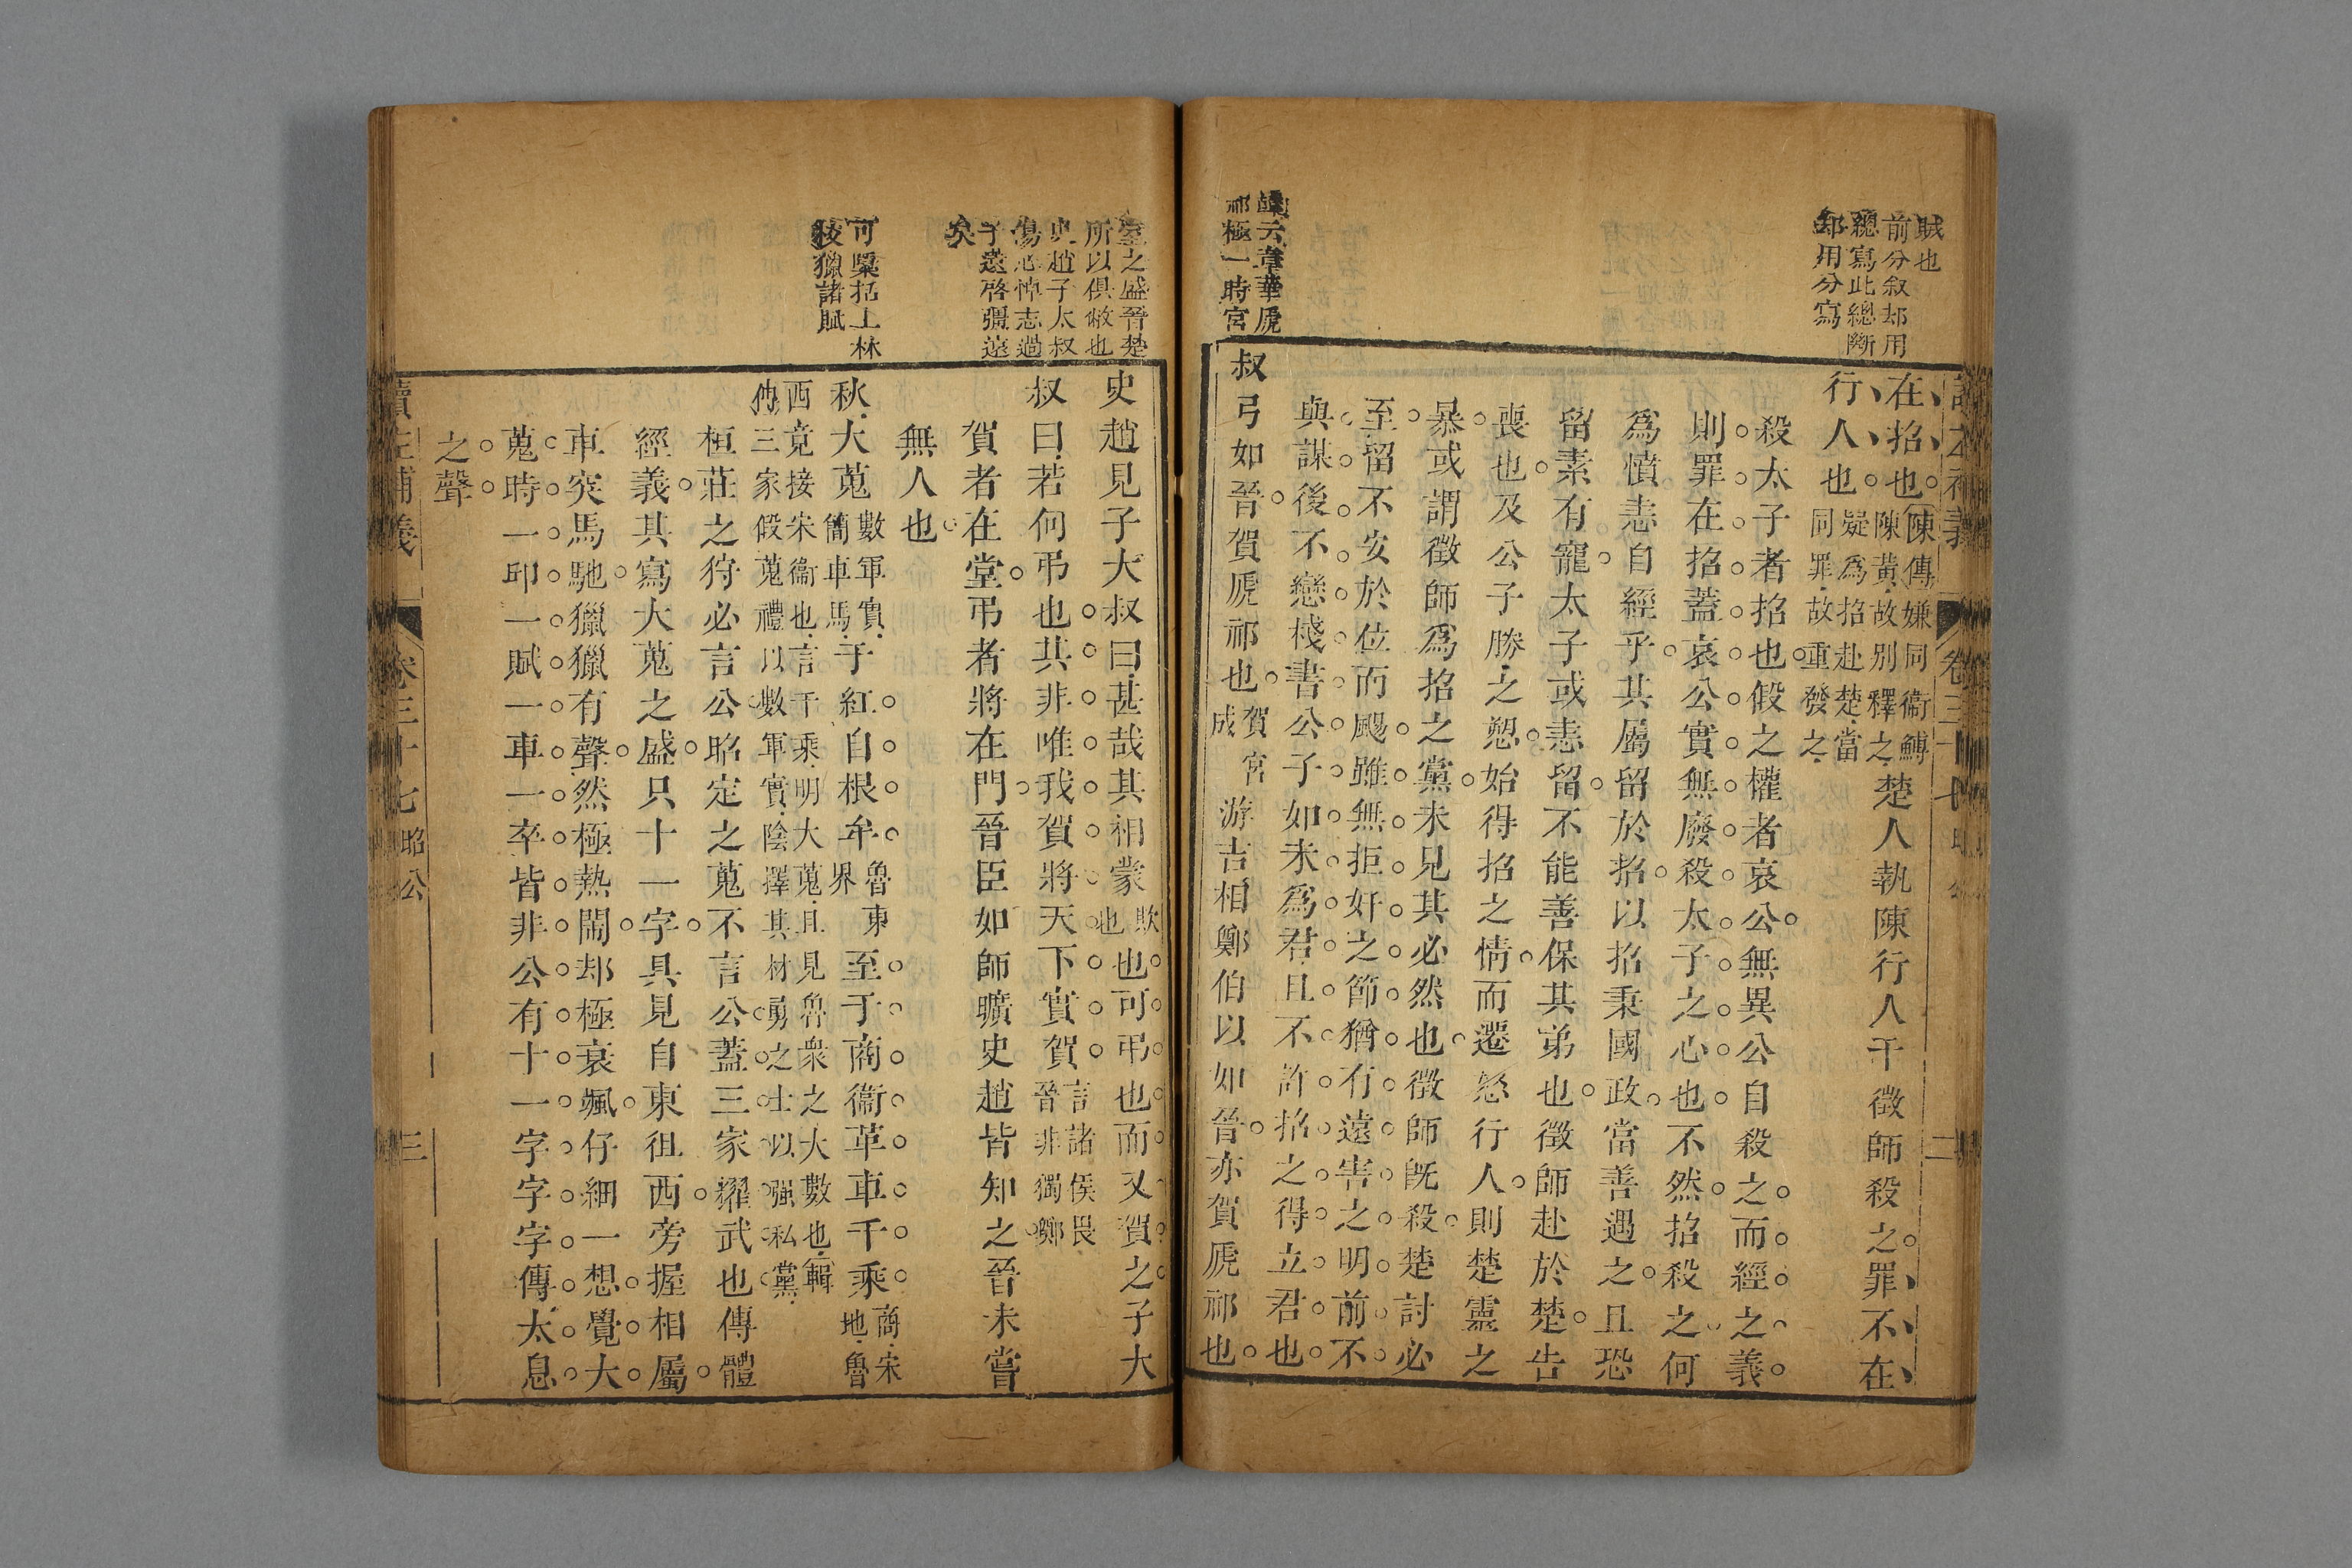 賊也
前分叙却用
總寫此總斷
却用分寫
在招也陳傳嫌同衞鱄陳黃故別釋之楚人執陳行人干徵師殺之罪不在
行人也疑爲招赴楚當同罪故重發之
殺太子者招也假之權者哀公無異公自殺之而經之義
則罪在招蓋哀公實無廢殺太子之心也不然招殺之何
爲憤恚自經乎其屬留於招以招秉國政當善遇之且恐
留素有寵太子或恚留不能善保其弟也徵師赴於楚告
喪也及公子勝之愬始得招之情而遷怒行人則楚靈之
暴或謂徵師爲招之黨未見其必然也徵師旣殺楚討必
至留不安於位而颺雖無拒奸之節猶有遠害之明前不
與謀後不戀棧書公子如未爲君且不許招之得立君也
叔弓如晉賀虒祁也賀宮成游吉相鄭伯以如晉亦賀虒祁也
韓云章華虒
祁極一時宮
室之盛晉楚
所以俱敝也
史趙子太叔
傷心悼志過
于薳啓彊遠
矣
史趙見子大叔曰甚哉其相蒙欺也也可弔也而又賀之子大
叔曰若何弔也其非唯我賀將天下實賀言諸侯畏晉非獨鄭
賀者在堂弔者將在門晉臣如師曠史趙皆知之晉未嘗
無人也
可檃括上林
校獵諸賦
秋大蒐數軍實簡車馬于紅自根牟魯東界至于商衞革車千乘商宋地魯
西竟接宋衞也言千乘明大蒐且見魯衆之大數也輯
冉三家假蒐禮以數軍實陰擇其材勇之士以强私黨
桓莊之狩必言公昭定之蒐不言公蓋三家耀武也傳體
經義其寫大蒐之盛只十一字具見自東徂西旁握相屬
車突馬馳獵獵有聲然極熱鬧却極衰颯仔細一想覺大
蒐時一邱一賦一車一卒皆非公有十一字字字傳太息
之聲
讀左補義
卷三十七
昭公
三